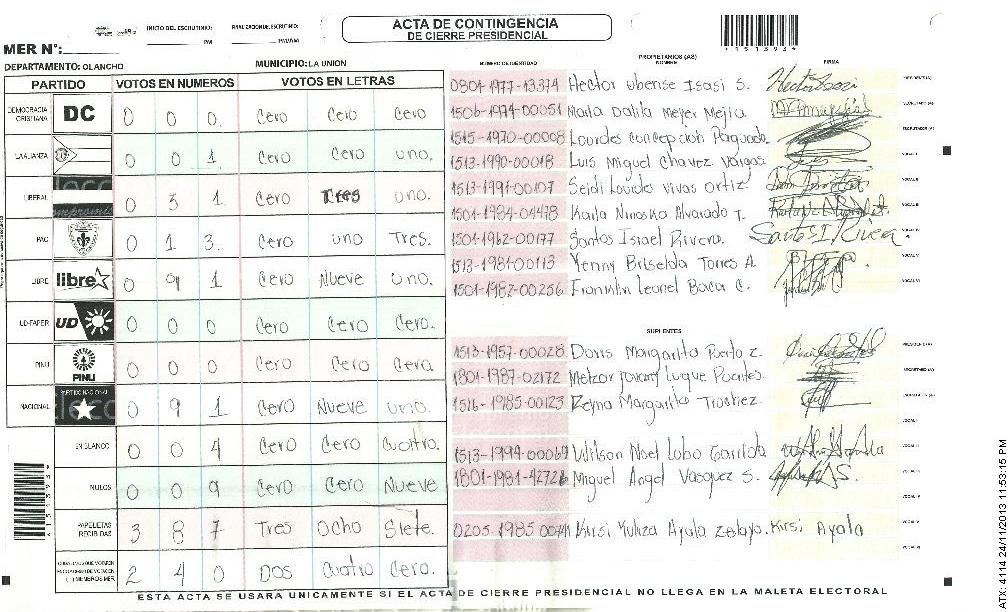 ACTA DE CONTINGENCIA
DE CIERRE PRESIDENCIAL
INICIO DEL ESCRUTINIO:
PM
MER N°:
*15139*
DEPARTAMENTO: OLANCHO MUNICIPIO: LA UNION
PARTIDO VOTOS EN NUMEROS VOTOS EN LETRAS
DEMOCRACIA CRISTIANA DC 0 0 0. Cero Cero Cero
LA ALIANZA 0 0 1 Cero Cero uno.
LIBERAL 0 3 1. Cero Tres uno.
PAC 0 1 3. Cero uno Tres.
LIBRE libre 0 9 1 Cero Nueve Uno.
UD-FAPER UD 0 0 0 Cero Cero Cero.
PINU PINU 0 0 0 Cero Cero Cero
NACIONAL 0 9 1 Cero Nueve Uno.
EN BLANCO 0 0 4 Cero Cero Cuatro.
NULOS 0 0 9 Cero Cero Nueve
PAPELETAS RECIBIDAS 3 8 7 Tres Ocho Siete.
2 4 0 Dos Cuatro Cero.
NUMERO DE IDENTIDAD PROPIETARIOS (AS) NOMBRE FIRMA
0801-1977-13374 Hector Ubense Isasi S.
1506-1974-00051 Maria Dalila Meyer Mejia
1515-1970-00008 Lourdes Concepcion Paguada
1513-1990-00018 Luis Miguel Chavez Vargas
1513-1991-00107 Seidi Lourdes Vivas Ortiz
1501-1984-04478 Karla Ninoska Alvarado T.
1501-1962-00177 Santos Israel Rivera. Santos I Rivera
1513-1981-00113 Yenny Briselda Torres A.
1501-1982-00256 Franklin Leonel Baca C.
SUPLENTES
1513-1957-00028 Doris Margarita Puerto Z.
1801-1987-02172
1516-1985-00123 Margarita Trochez
1513-1994-00069 Wilson Noel Lobo
1801-1981-42728 Miguel Angel Vasquez S.
Kirsi Yuliza Ayala Zelaya. Kirsi Ayala
ESTA ACTA SE USARA UNICAMENTE SI EL ACTA DE CIERRE PRESIDENCIAL NO LLEGA EN LA MALETA ELECTORAL
ATX: 4114 24/11/2013 11:53:15 PM